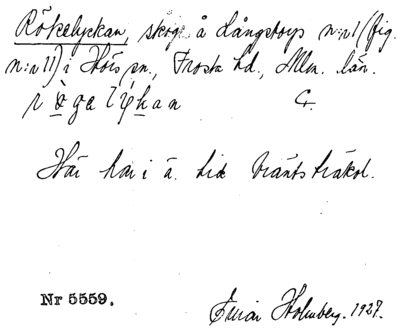 Rökelyckan, skog å Långstorps n:r 1 (fig.
n:r 11) i Hörs sn., Frosta hd., Mlm. län.
C.
Här har i ä. tid bränts träkol.
Nr 5559.
Einar Holmberg. 1927.